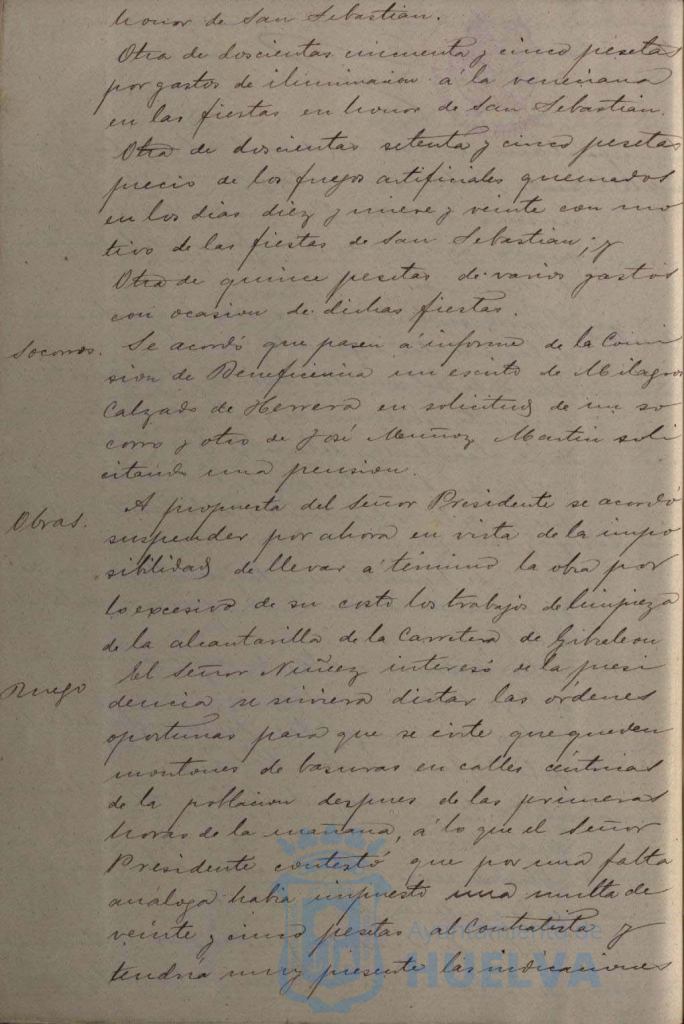 honor de San Sebastian.
Otra de doscientas cincuenta y cinco pesetas
por gastos de iluminacion á la veneciana
en las fiestas en honor de San Sebastian.
Otra de doscientas setenta y cinco pesetas
precio de los fuegos artificiales quemados
en los dias diez y nueve y veinte con mo
tivo de las fiestas de San Sebastian; y
Otra de quince pesetas de varios gastos
con ocasion de dichas fiestas.
Socorros. Se acordó que pasen á informe de la Comi
sion de Beneficencia un escrito de Milagros
Calzado de Herrera en solicitud de un so
corro y otro de José Muñoz Martin soli
citando una pension.
Obras. A propuesta del Señor Presidente se acordó
suspender por ahora en vista de la impo
sibilidad de llevar á término la obra por
lo excesivo de su costo los trabajos de limpieza
de la alcantarilla de la Carretera de Gibraleon
Ruego El Señor Nuñez interesó de la presi
dencia se sirviera dictar las órdenes
oportunas para que se evite que queden
montones de basuras en calles céntricas
de la poblacion despues de las primeras
horas de la mañana, á lo que el Señor
Presidente contestó que por una falta
análoga habia impuesto una multa de
veinte y cinco pesetas al Contratista y
tendria muy presente las indicaciones
Ayuntamiento de
HUELVA